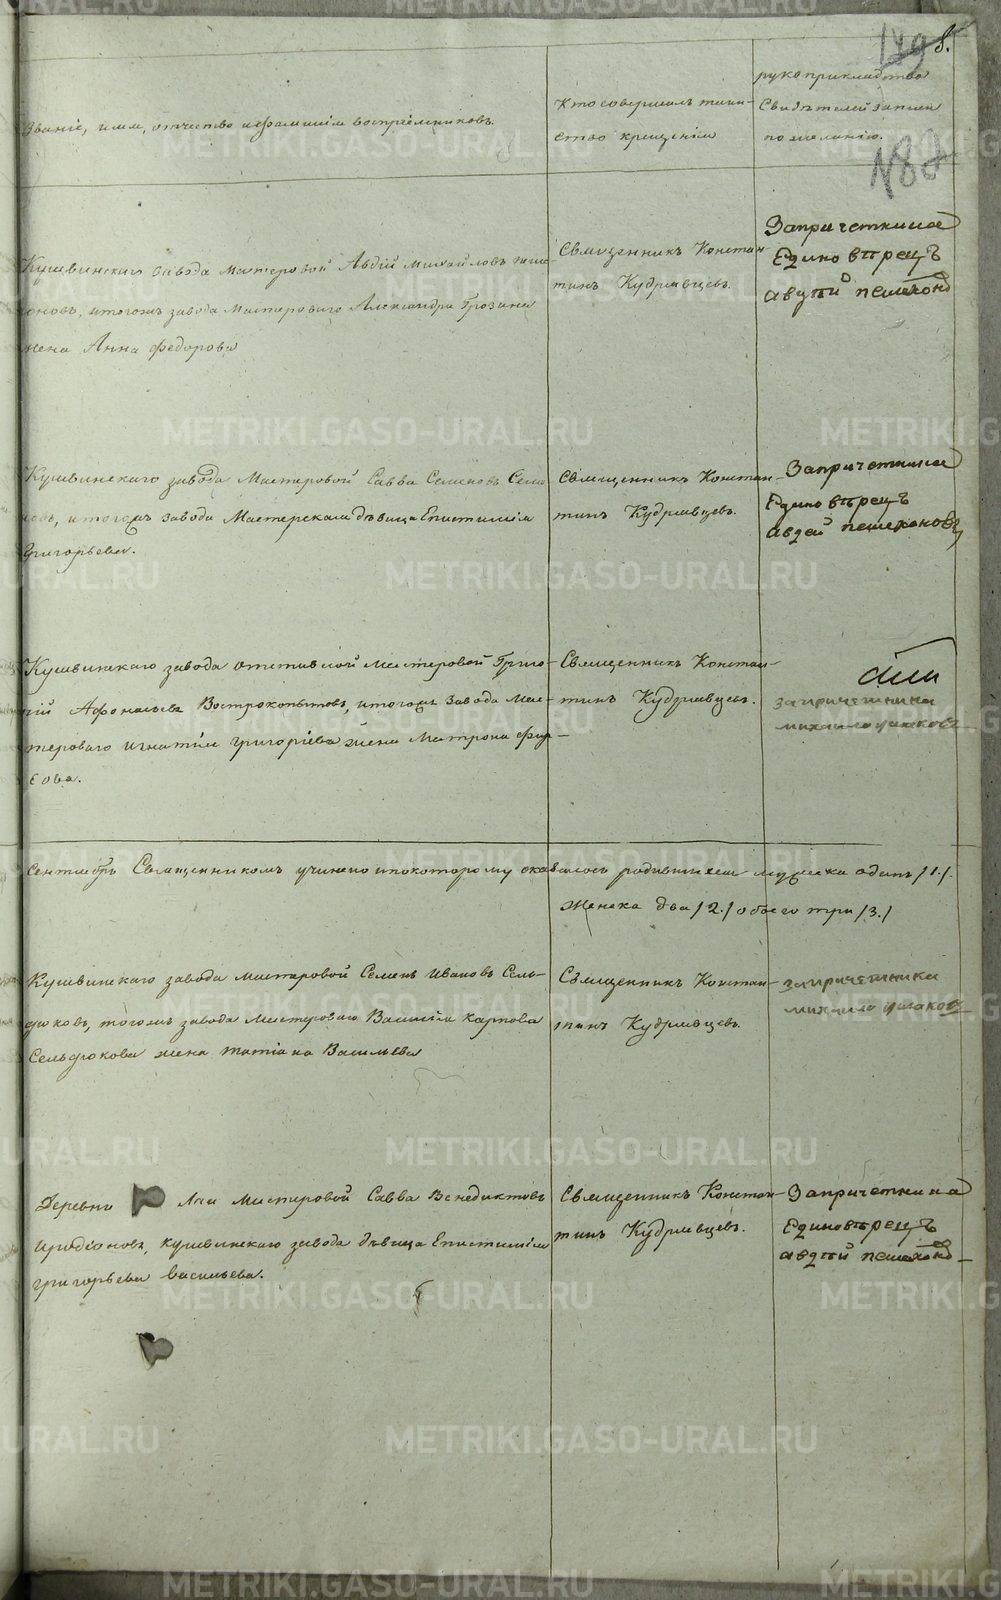 149 8.
Званіе, имя, отчество и фамилія воспріемниковъ.
Кто совершалъ таин-
ство крещенія
рукоприкладство
Свидѣтелей записи
по желанію.
№82
Кушвинскаго завода мастеровой Авдій Михайловъ Пеше-
хоновъ, и тогожъ завода Мастероваго Александра Грозина
жена Анна Федорова
Священникъ Констан-
тинъ Кудрявцевъ.
Запричетника
Единовѣрецъ
авдѣй пешехоно
Кушвинскаго завода Мастеровой Савва Семеновъ
и тогожъ завода Мастерская дѣвица Епистимія
Григорьева.
Священникъ Констан-
тинъ Кудрявцевъ.
Запричетника
Единовѣрецъ
авдей пешехоновъ
Кушвинскаго завода отставной мастеровой Григо-
рій Афонасьевъ Вострокопытовъ, и тогожъ завода Мас-
тероваго Игнатія Григоріева жена Матрона Фир-
сова.
Священникъ Констан-
тинъ Кудрявцевъ.
запричетника
михаило ушаковъ
Сентябрь Священникомъ учинено ипокоторому оказалось родившихся мужеска одинъ /1./.
Женска два /2./ обоего три /3./
Кушвинскаго завода мастеровой Семенъ Ивановъ Сель-
дюковъ, тогожъ завода Мастероваго Василія Карпова
Сельдюкова жена Татіана Васильева
Священникъ Констан-
тинъ Кудрявцевъ.
запричетника
михаило ушаковъ
Деревни Лаи Мастеровой Савва Венедиктовъ
Иродіоновъ, Кушвинскаго завода дѣвица Епистимія
Григорьева Васильева.
Священникъ Констан-
тинъ Кудрявцевъ.
Запричетника
Единовѣрецъ
авдѣй пешехоно
METRIKI.GASO-URAL.RU